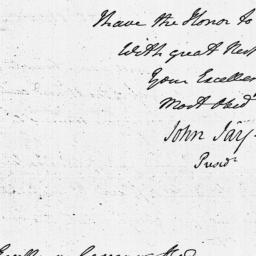 I have the Honor to
With great Resp
Your Excellen
Most Obedt
John Jay
Presidt